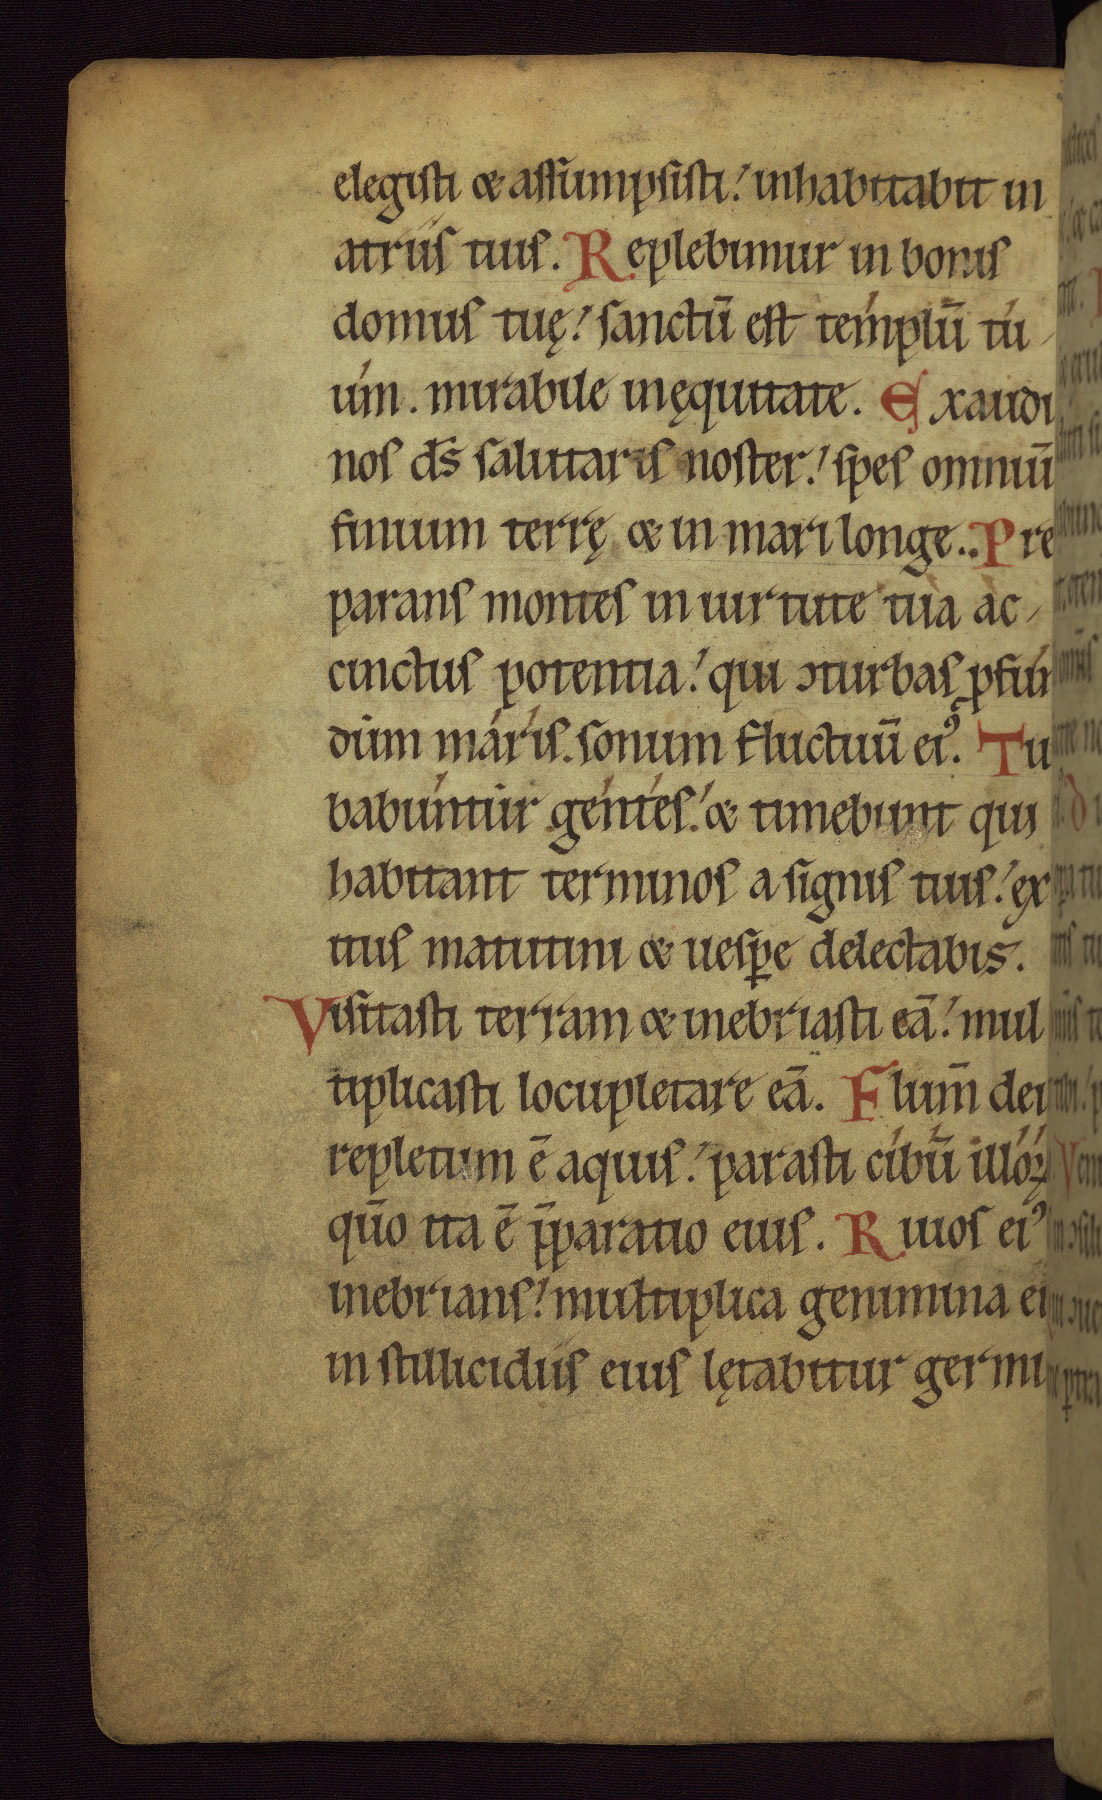 elegisti & assumpsisti! inhabitabit in
atriis tuis. Replebimur in bonis
domus tuę! sanctū est templū tu
um. mirabile inęquitate. Exaudi
nos ds̄ salutaris noster! spes omniū
finium terrę & in mari longe.. Pre
parans montes in uirtute tua ac
cinctus potentia! qui ɔturbas ꝓfun
dum maris. sonum fluctuū ei⁹. Tu
babuntur gentes! & timebunt qui
habitant terminos a signis tuis! ex
itus matutini & uesꝑe delectabis.
Visitasti terram & inebriasti eā! mul
tiplicasti locupletare eā. Flum̄ dei
repletum ē aquis! parasti cibū illoꝝ
qūo ita ē p̄paratio eius. Riuos ei⁹
inebrians! multiplica genimina ei
in stillicidiis eius lętabitur germi